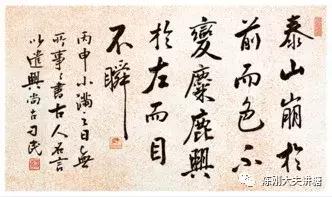 泰山崩於
前而色不
變麋鹿興
於左而目
不瞬
丙申小滿之日無
所事々書古人名言
以遣興尚古刁民
陈刚大夫讲糖